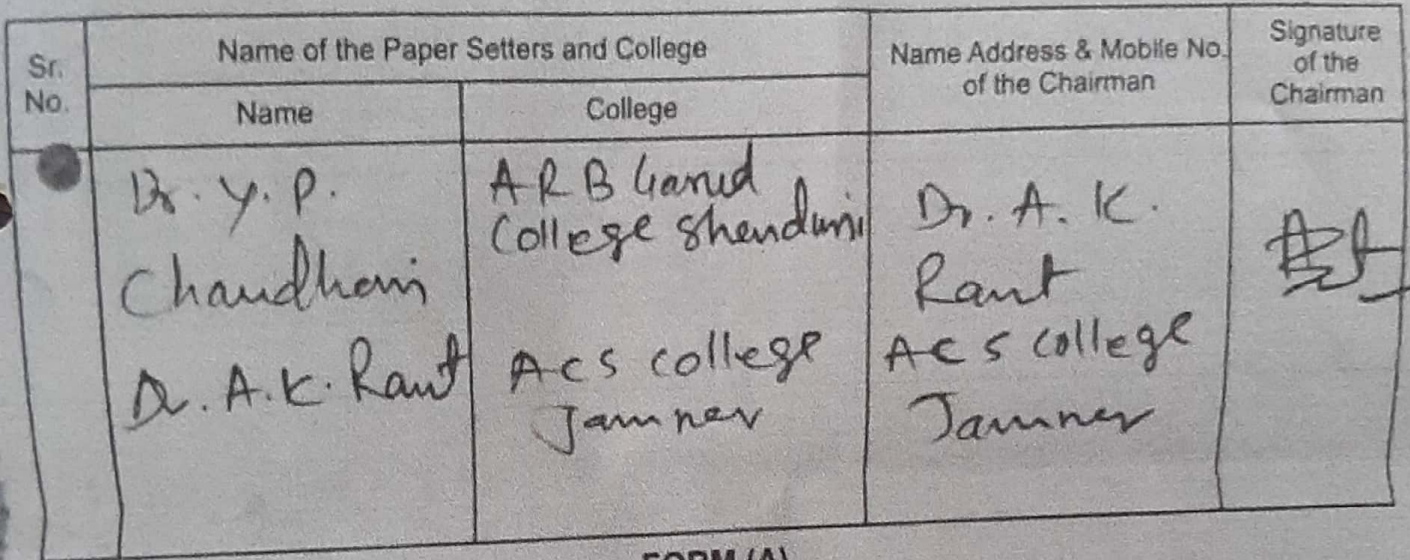 Sr.
No.
Name of the Paper Setters and College
Name
College
Name Address & Mobile No.
of the Chairman
Signature
of the
Chairman
Dr. Y. P.
Chaudhari
A R B Garud
College Shenduni
Dr. A. K.
Raut
ACS College
Jamner
Dr. A. K. Raut
ACS College
Jamner
FORM (A)